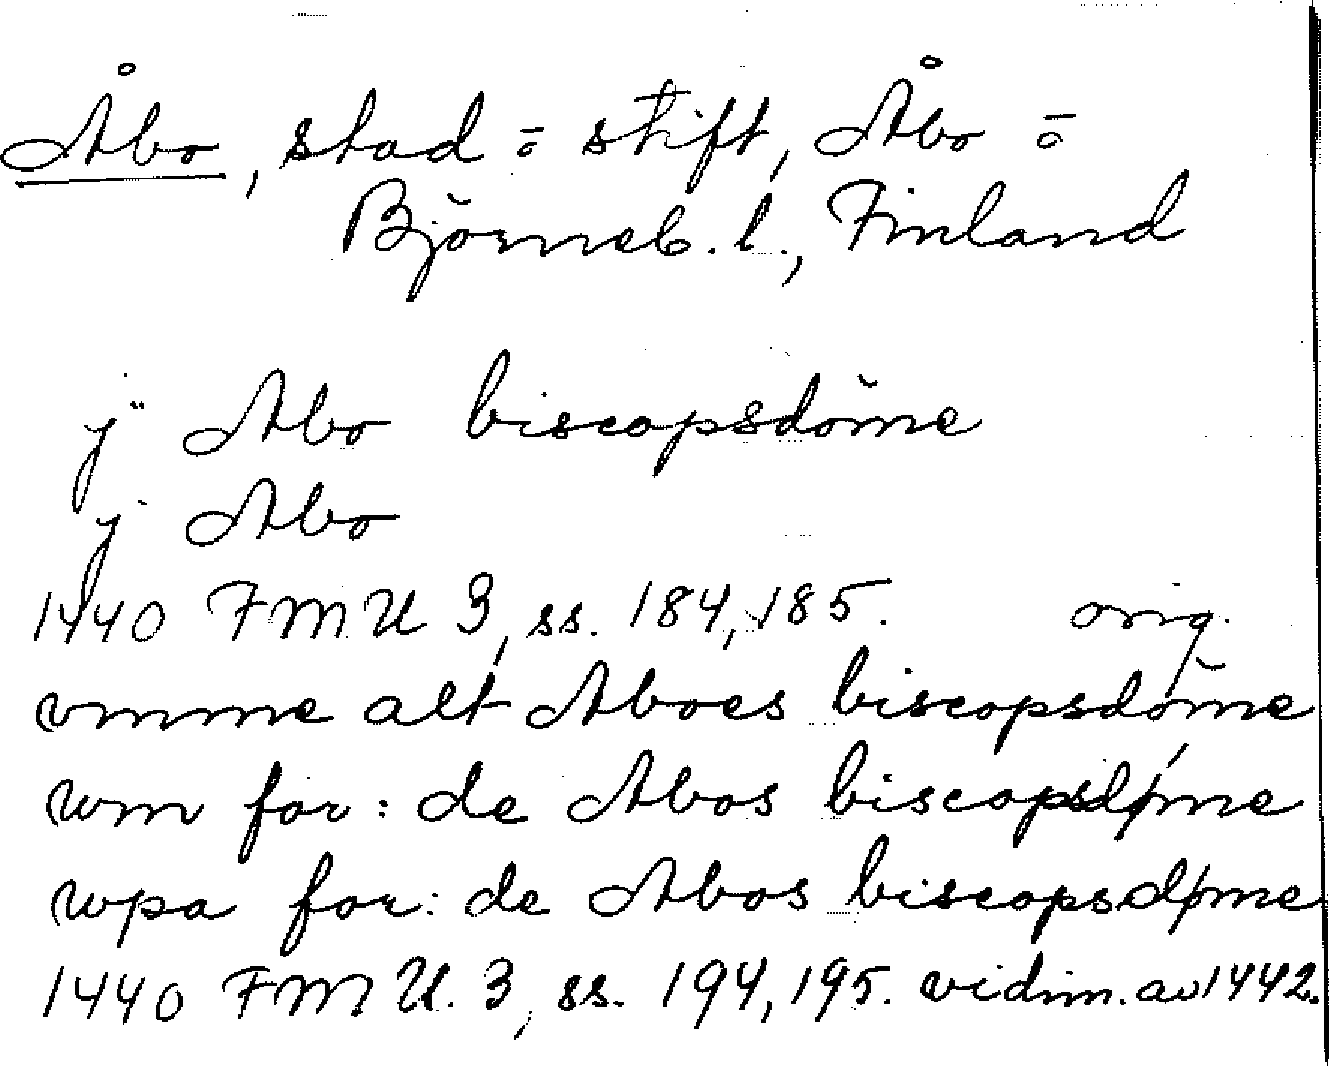 Åbo, stad o stift, Åbo o
Björneb. l., Finland
j Abo biscopsdöme
j Abo
1440 FMU 3, ss. 184, 185. orig.
vmme alt Aboes biscopsdöme
wm for: de Abos biscopsdøme
wpa for: de Abos biscopsdøme
1440 FMU. 3, ss. 194, 195. vidim. av 1442.